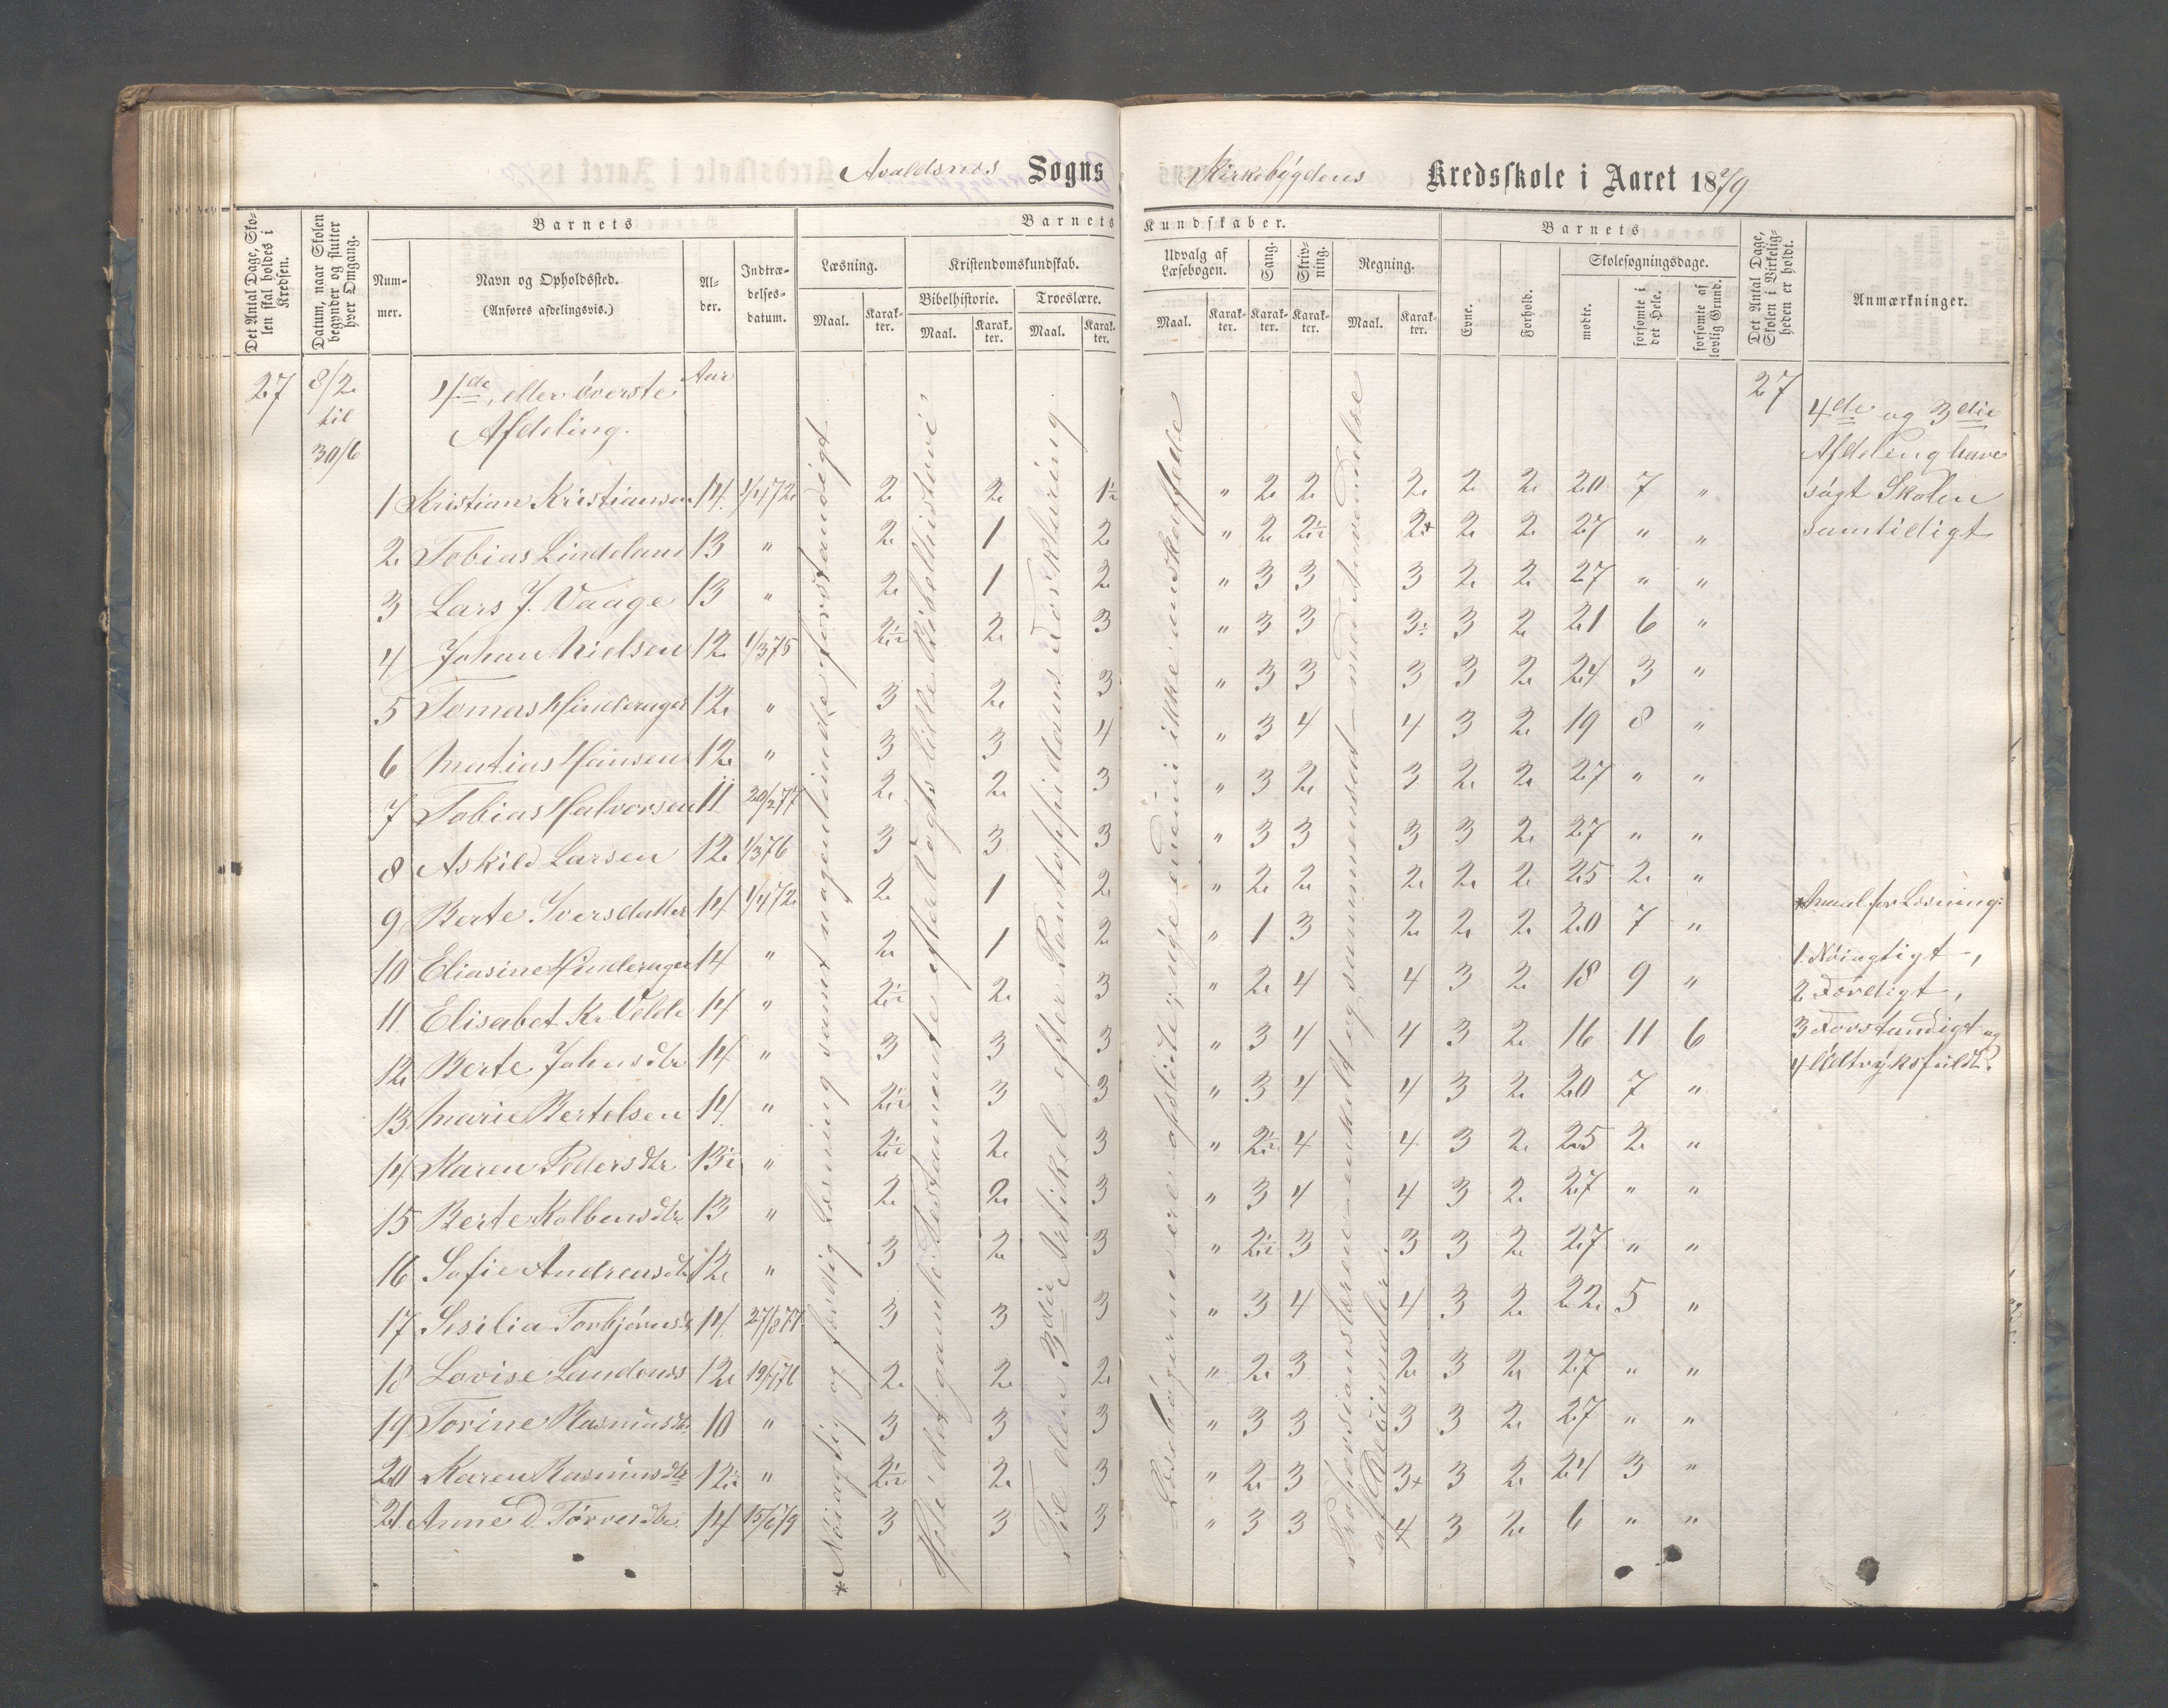 Avaldsnæs Sogns Kirkebygdens Kredsskole i Aaret 1879
Det Antal Dage, Skolen skal holdes i Kredsen.
Datum, naar Skolen begynder og slutter hver Omgang.
Barnets
Nummer.
Navn og Opholdssted.
(Anføres afdelingsvis.)
Alder.
Indtrædelsesdatum.
Barnets Kundskaber.
Læsning.
Maal.
Karakter.
Kristendomskundskab.
Bibelhistorie.
Maal.
Karakter.
Troeslære.
Maal.
Karakter.
Udvalg af Læsebogen.
Maal.
Karakter.
Sang.
Karakter.
Skrivning.
Karakter.
Regning.
Maal.
Karakter.
Barnets
Evne.
Forhold.
Skolesøgningsdage.
mødte.
forsømte i det Hele.
forsømte af lovlig Grund.
Det Antal Dage, Skolen i Virkeligheden er holdt.
Anmærkninger.
27 8/2 til 30/6
4de, eller øverste Afdeling.
Aar
27
1 Kristian Kristiansen 14 1/4 72 2 2 1½ " 2 2 2 2 2 20 7 "
2 Tobias Lindeland 13 " 2 1 2 " 2 2½ 2+ 2 2 27 " "
3 Lars J. Vaage 13 " 2 1 2 " 3 3 3 2 2 27 " "
4 Johan Nielsen 12 1/3 75 2½ 2 3 " 3 3 3÷ 3 2 21 6 "
5 Tomas Hinderager 12 " 3 2 3 " 3 3 3 3 2 24 3 "
6 Matias Hansen 12 " 3 3 4 " 3 4 4 3 2 19 8 "
7 Tobias Halvorsen 11 20/2 77 2 2 3 " 3 2 3 2 2 27 " "
8 Askild Larsen 12 1/3 76 3 3 3 " 3 3 3 3 2 27 " "
9 Berte Iversdatter 14 1/4 72 2 1 2 " 2 2 2 2 2 25 2 "
10 Eliasine Hinderager 14 " 2 1 2 " 1 3 2 2 2 20 7 "
11 Elisabet K. Velde 14 " 2½ 2 3 " 2 4 4 3 2 18 9 "
12 Berte Johnsdtr 14 " 3 3 3 " 3 4 4 3 2 16 11 6
13 Marie Bertelsen 14 " 2½ 3 3 " 3 4 4 3 2 20 7 "
14 Maren Pedersdtr 13½ " 2½ 2 3 " 2½ 4 4 3 2 25 2 "
15 Berte Kolbensdtr 13 " 2 2 3 " 3 4 4 3 2 27 " "
16 Sofie Andreasdtr 12 " 3 2 3 " 2½ 3 3 3 2 27 " "
17 Sesilia Torbjørnsdtr 14 27/8 77 3 3 3 " 3 4 4 3 2 22 5 "
18 Lovise 12 19/4 76 2 2 2 " 2 3 2 3 2 27 " "
19 Torine Rasmusdtr 10 " 3 3 3 " 3 3 3 3 2 27 " "
20 Karen Rasmusdtr 12½ " 2½ 2 3 " 2 3 3+ 3 2 24 3 "
21 Anne D. Tørresdtr 14 15/6 79 3 3 3 " 3 3 4 3 2 6 " "
*Nøiagtig og færdig Læsning samt nogenlunde forstandigt
Hele det gamle Testamente efter Vogts lille Bibelhistorie
Til den 3die Artikel efter Pontoppidans Forklaring
Læsebøgerne ere opslidte; nye endnu ikke anskaffede
Proporsjonslæren - enkelt og sammensat - med Anvendelse
af Decimaler
4de og 3die
Afdeling have
søgt Skolen
samtidigt
*Maal for Læsning:
1 Nøiagtigt,
2 Færdigt,
3 Forstandigt og
4 Udtryksfuldt.